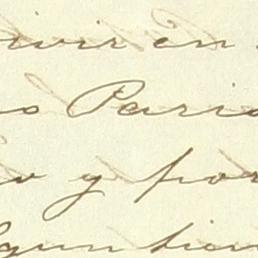 ivir en
o Paris
o y por
lgun tiem